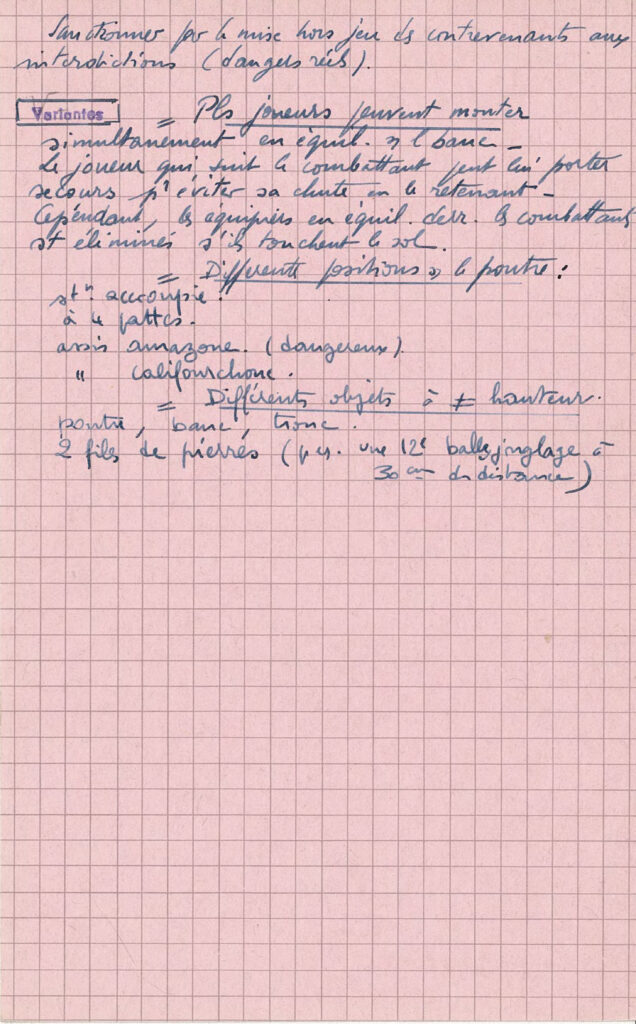 Sanctionner par la mise hors jeu des contrevenants aux
interdictions (dangers réels).
Variantes = Pls joueurs peuvent monter
simultanement en équil. s/ l banc –
Le joueur qui suit le combattant peut lui porter
secours pr éviter sa chute en le retenant –
Cependant, les équipiers en équil. derr. les combattants
st éliminés s'ils touchent le sol.
= Différentes positions s/ la poutre :
accroupie.
à 4 pattes.
assis amazone. (dangereux).
" califourchone.
= Différents objets à ≠ hauteur.
poutre, banc, tronc.
2 files de pierres ( une 12e balles jonglage à
30 cm de distance)